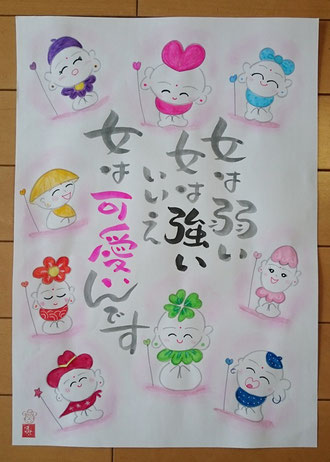 女は弱い
女は強い
いいえ
女は可愛いんです